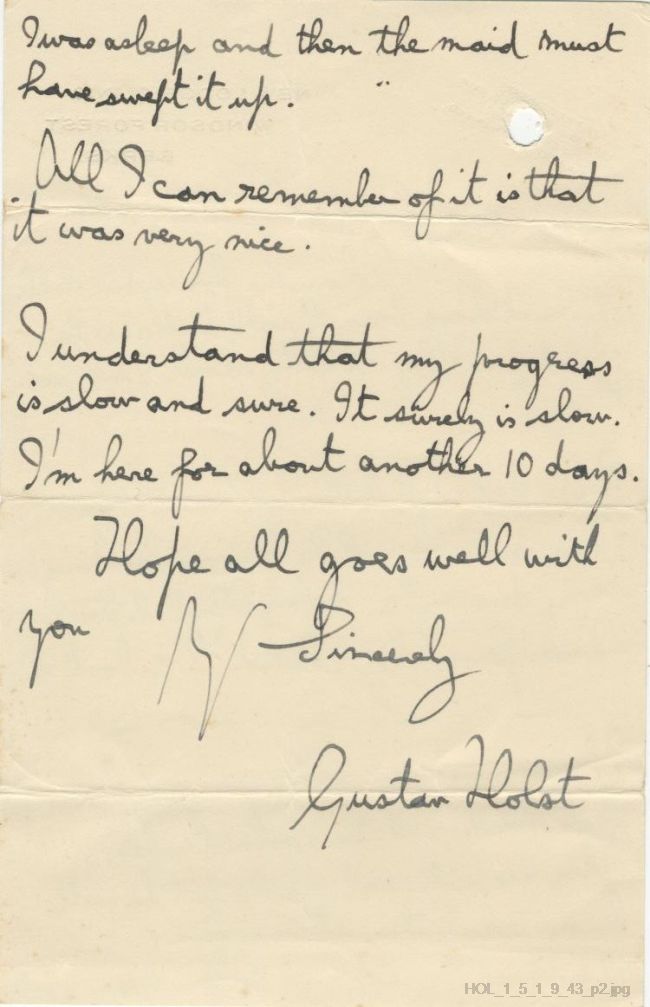 I was asleep and then the maid must
have swept it up.
All I can remember of it is that
it was very nice.
I understand that my progress
is slow and sure. It surely is slow.
I'm here for about another 10 days.
Hope all goes well with
you
Sincerely
Gustav Holst
HOL_1_5_1_9_43_p2.jpg